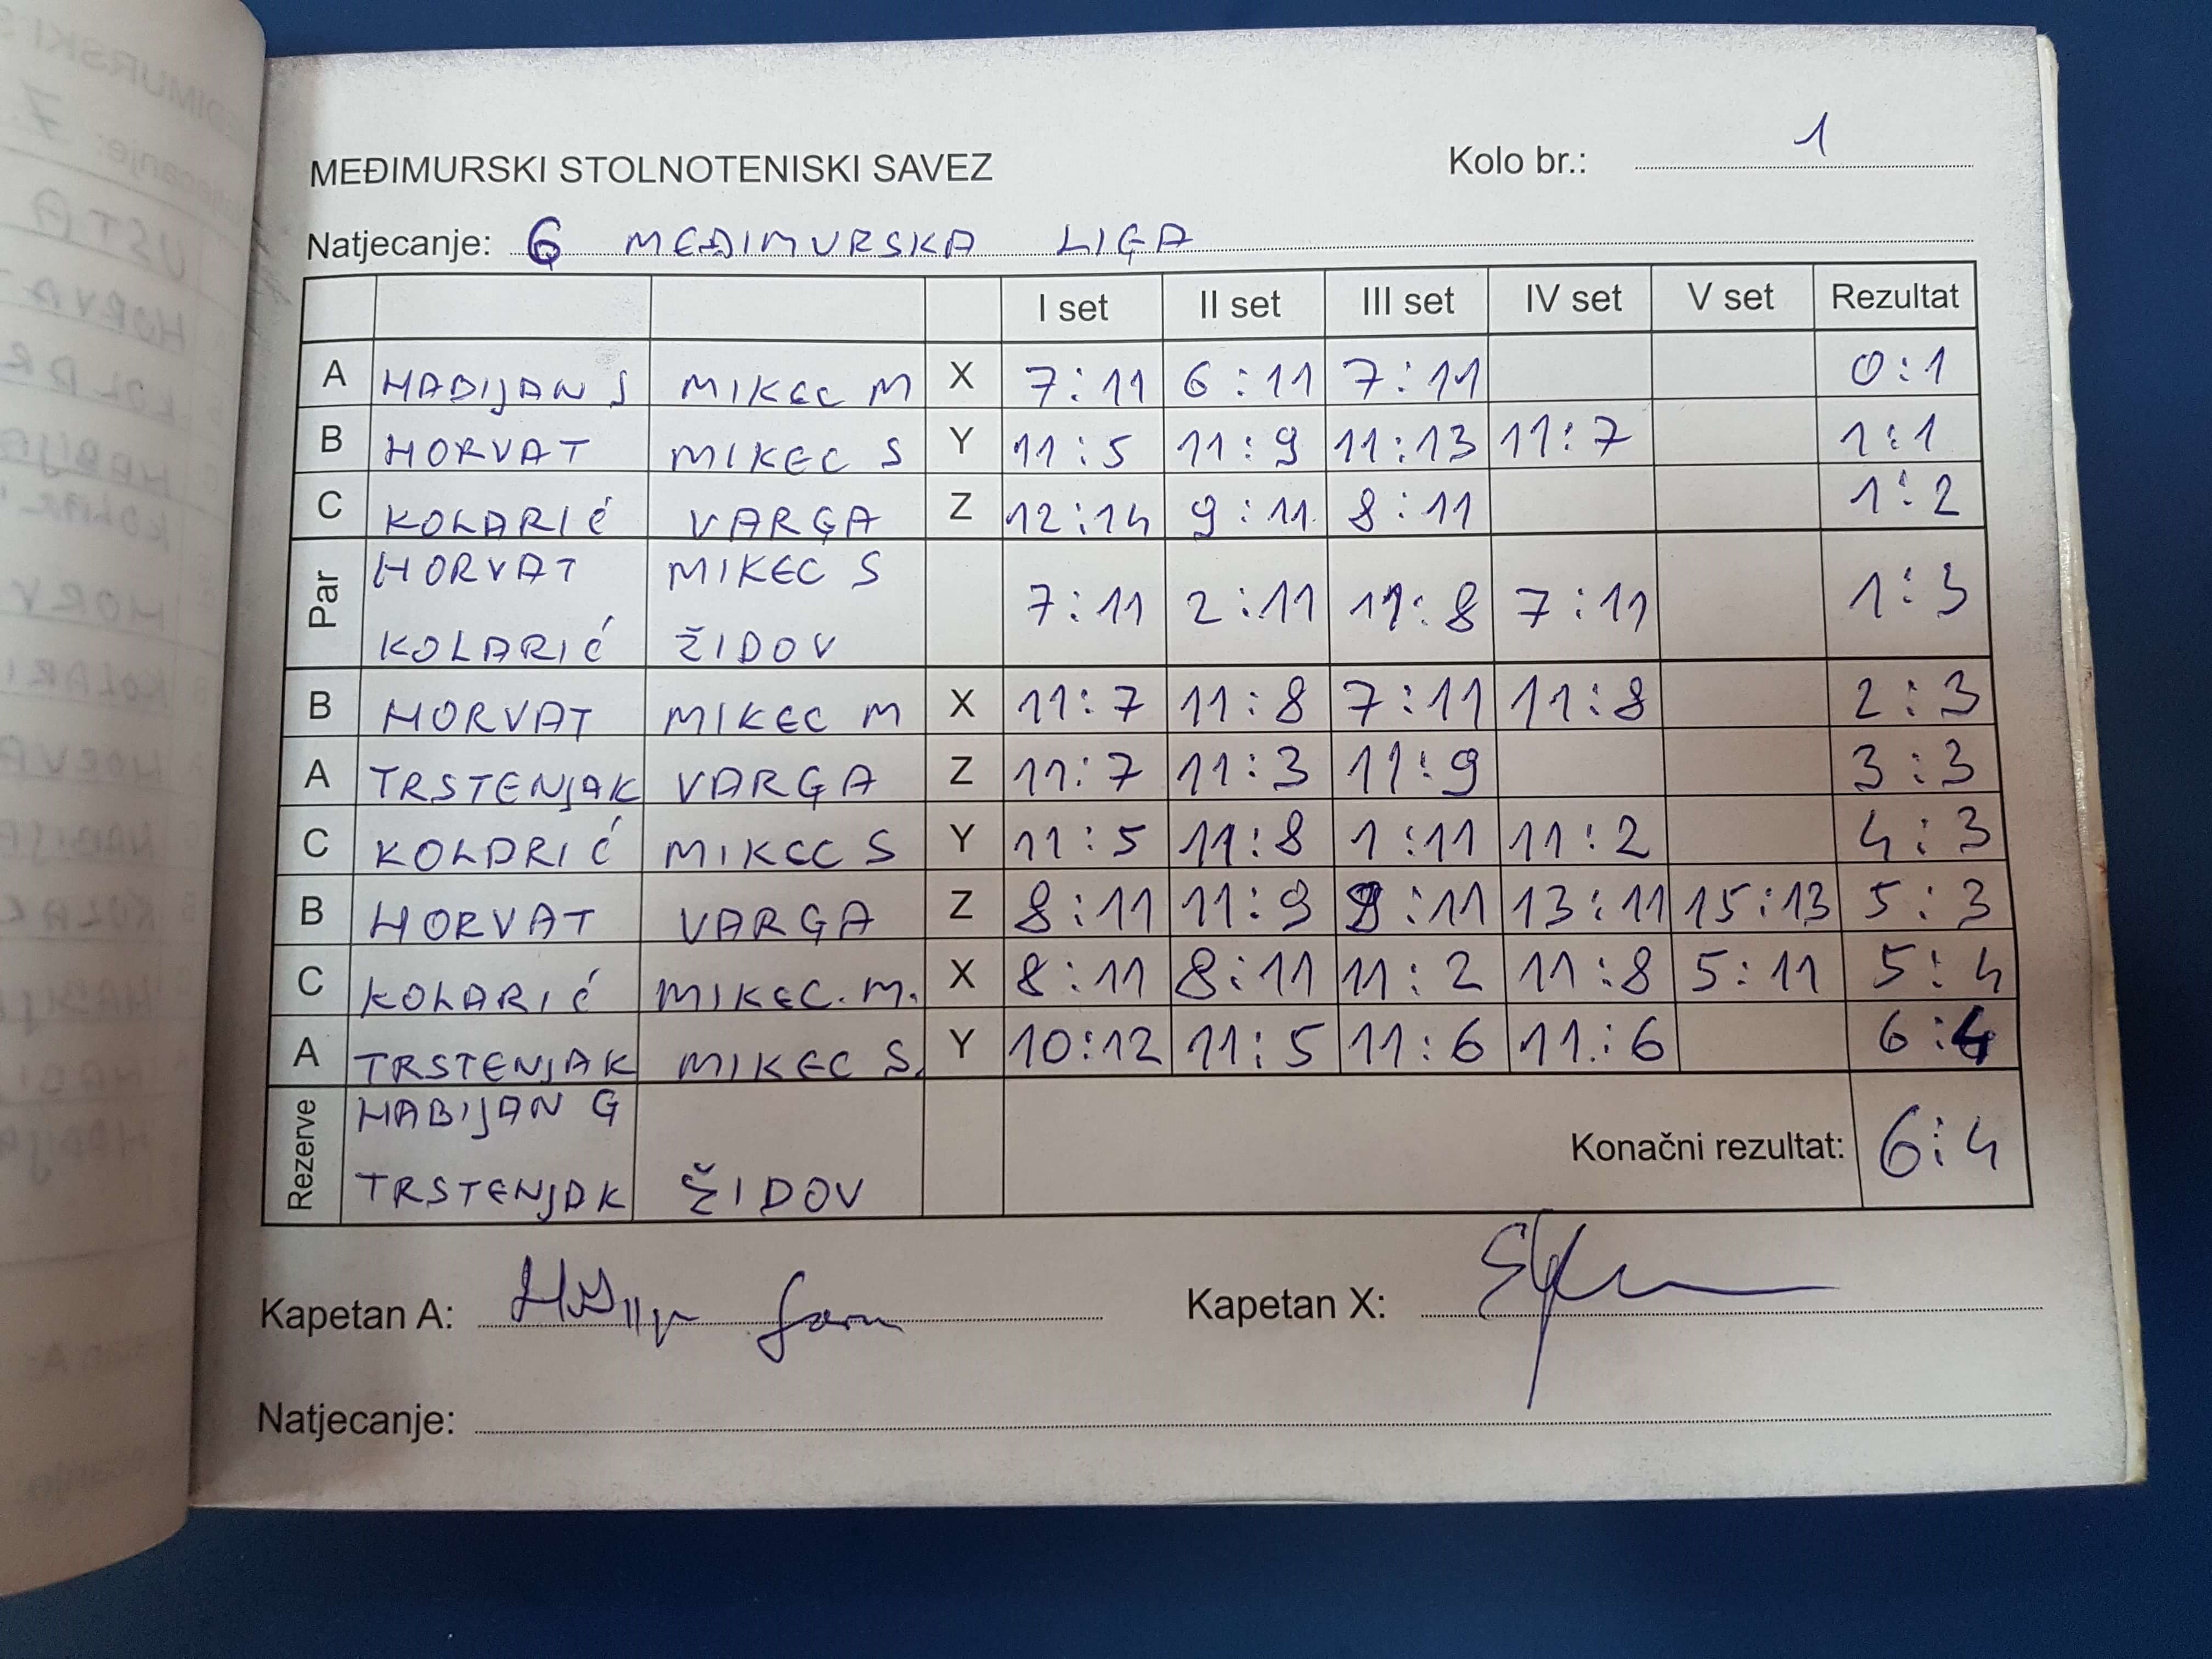 MEĐIMURSKI STOLNOTENISKI SAVEZ Kolo br.: 1
Natjecanje: 6 MEĐIMURSKA LIGA
I set II set III set IV set V set Rezultat
A HABIJAN S MIKEC M X 7:11 6:11 7:11 0:1
B HORVAT MIKEC S Y 11:5 11:9 11:13 11:7 1:1
C KOLARIĆ VARGA Z 12:14 9:11 8:11 1:2
Par HORVAT MIKEC S 7:11 2:11 11:8 7:11 1:3
KOLARIĆ ŽIDOV
B HORVAT MIKEC M X 11:7 11:8 7:11 11:8 2:3
A TRSTENJAK VARGA Z 11:7 11:3 11:9 3:3
C KOLARIĆ MIKEC S Y 11:5 11:8 1:11 11:2 4:3
B HORVAT VARGA Z 8:11 11:9 9:11 13:11 15:13 5:3
C KOLARIĆ MIKEC.M. X 8:11 8:11 11:2 11:8 5:11 5:4
A TRSTENJAK MIKEC S. Y 10:12 11:5 11:6 11:6 6:4
Rezerve HABIJAN G Konačni rezultat: 6:4
TRSTENJAK ŽIDOV
Kapetan A: Kapetan X:
Natjecanje: